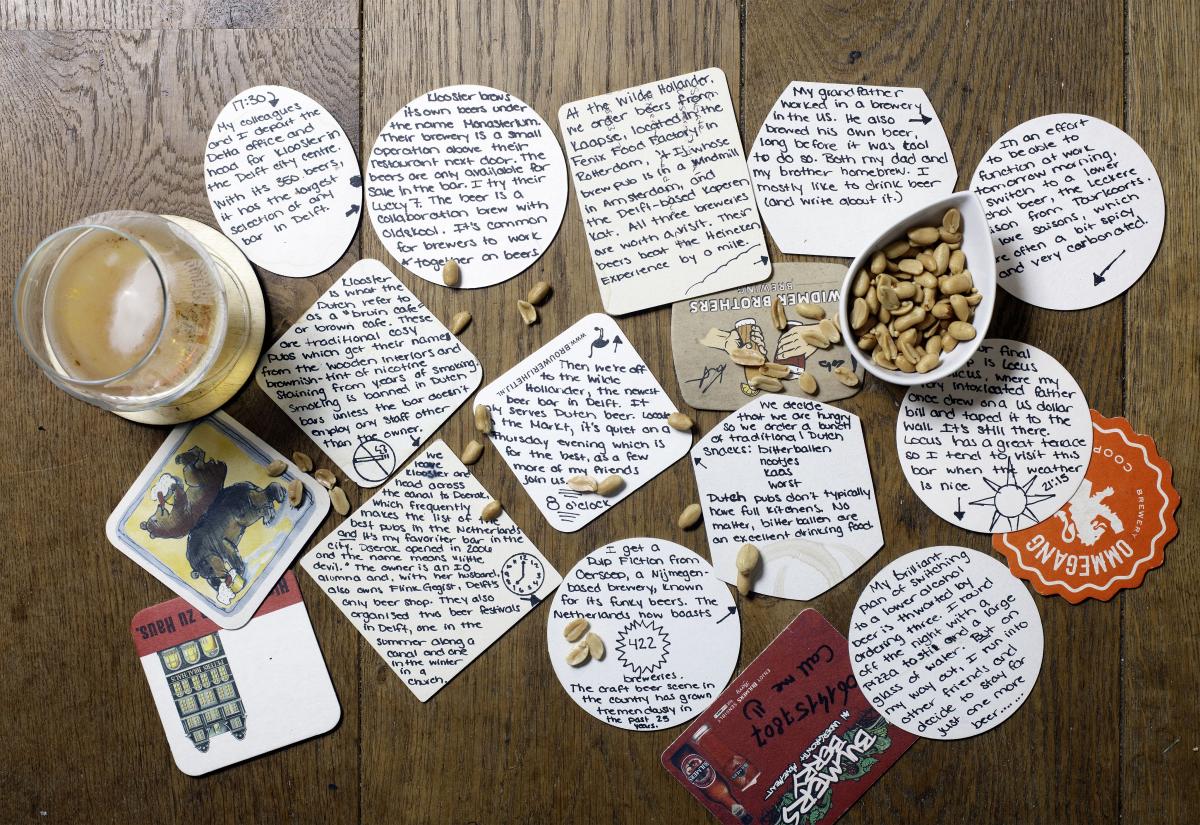 17:30
My colleagues
and I depart the
Delta office and
head for Klooster in
the Delft city centre.
With its 350 beers,
it has the largest
selection of any
bar in Delft.
Klooster brews
its own beers under
the name Monasterium.
Their brewery is a small
operation above their
restaurant next door. The
beers are only available for
sale in the bar. I try their
Lucky 7. The beer is a
collaboration brew with
Oldskool. It's common
for brewers to work
together on beers
Klooster
is what the
Dutch refer to
as a "bruin café"
or brown café. These
are traditional cosy
pubs which get their name
from the wooden interiors and
brownish-tint of nicotine
staining from years of smoking.
Smoking is banned in Dutch
bars unless the bar doesn't
employ any staff other
than the owner.
We
leave
Klooster and
head across
the canal to Doerak,
which frequently
makes the list of the
best pubs in the Netherlands
and it's my favoriter bar in the
city. Doerak opened in 2006
and the name means "little
devil." The owner is an IO
alumna and, with her husband,
also owns Flink Gegist, Delft's
only beer shop. They also
organised the beer festivals
in Delft, one in the
summer along a
canal and one
in the winter
in a
church.
www.BROUWERIJHETIJ.NL
Then we're off
to the Wilde
Hollander, the newest
beer bar in Delft. It
serves Dutch beer. Located
the Markt, it's quiet on a
Thursday evening which is
for the best, as a few
more of my friends
join us.
8 o'clock
At the Wilde Hollander,
we order beers from
Kaapse, located in the
Fenix Food Factory in
Rotterdam, 't IJ whose
brew pub is in a windmill
in Amsterdam, and
the Delft-based Koperen
Kat. All three breweries
are worth a visit. Their
beers beat the Heineken
Experience by a mile.
I get a
Pulp Fiction from
Oersoep, a Nijmegen
based brewery, known
for its funky beers. The
Netherlands now boasts
422
breweries.
The craft beer scene in
the country has grown
tremendously in
the past 25
years.
My grandfather
worked in a brewery
in the US. He also
brewed his own beer,
long before it was cool
to do so. Both my dad and
my brother homebrew. I
mostly like to drink beer
(and write about it.)
WIDMER BROTHERS
BREWING
We decide
that we are hungry
so we order a bunch
of traditional Dutch
snacks: bitterballen
nootjes
kaas
worst
Dutch pubs don't typically
have full kitchens. No
matter, bitterballen are
an excellent drinking food
In an effort
to be able to
function at work
tomorrow morning,
switch to a lower
beer, the leckere
from Tourkoorts.
love saisons, which
are often a bit spicy
and very carbonated.
our final
is Locus
where my
very intoxicated father
once drew on a US dollar
bill and taped it to the
wall. It's still there.
Locus has a great terrace
so I tend to visit this
bar when the weather
is nice.
21:15
BREWERY
OMMEGANG
COOP
My brilliant
plan of switching
to a lower alcohol
beer is thwarted by
ordering three. I round
off the night with a
pizza to still and a large
glass of water. But on
my way out, I run into
other friends and
decide to stay for
just one more
beer.....
Call me
0614457807
ENJOY BULMERS SENSIBLY
BULMERS
BULMERS
BERRY
AN UNDERGROWTH ADVENTURE
zu Haus.
PETERS BRAUHAUS